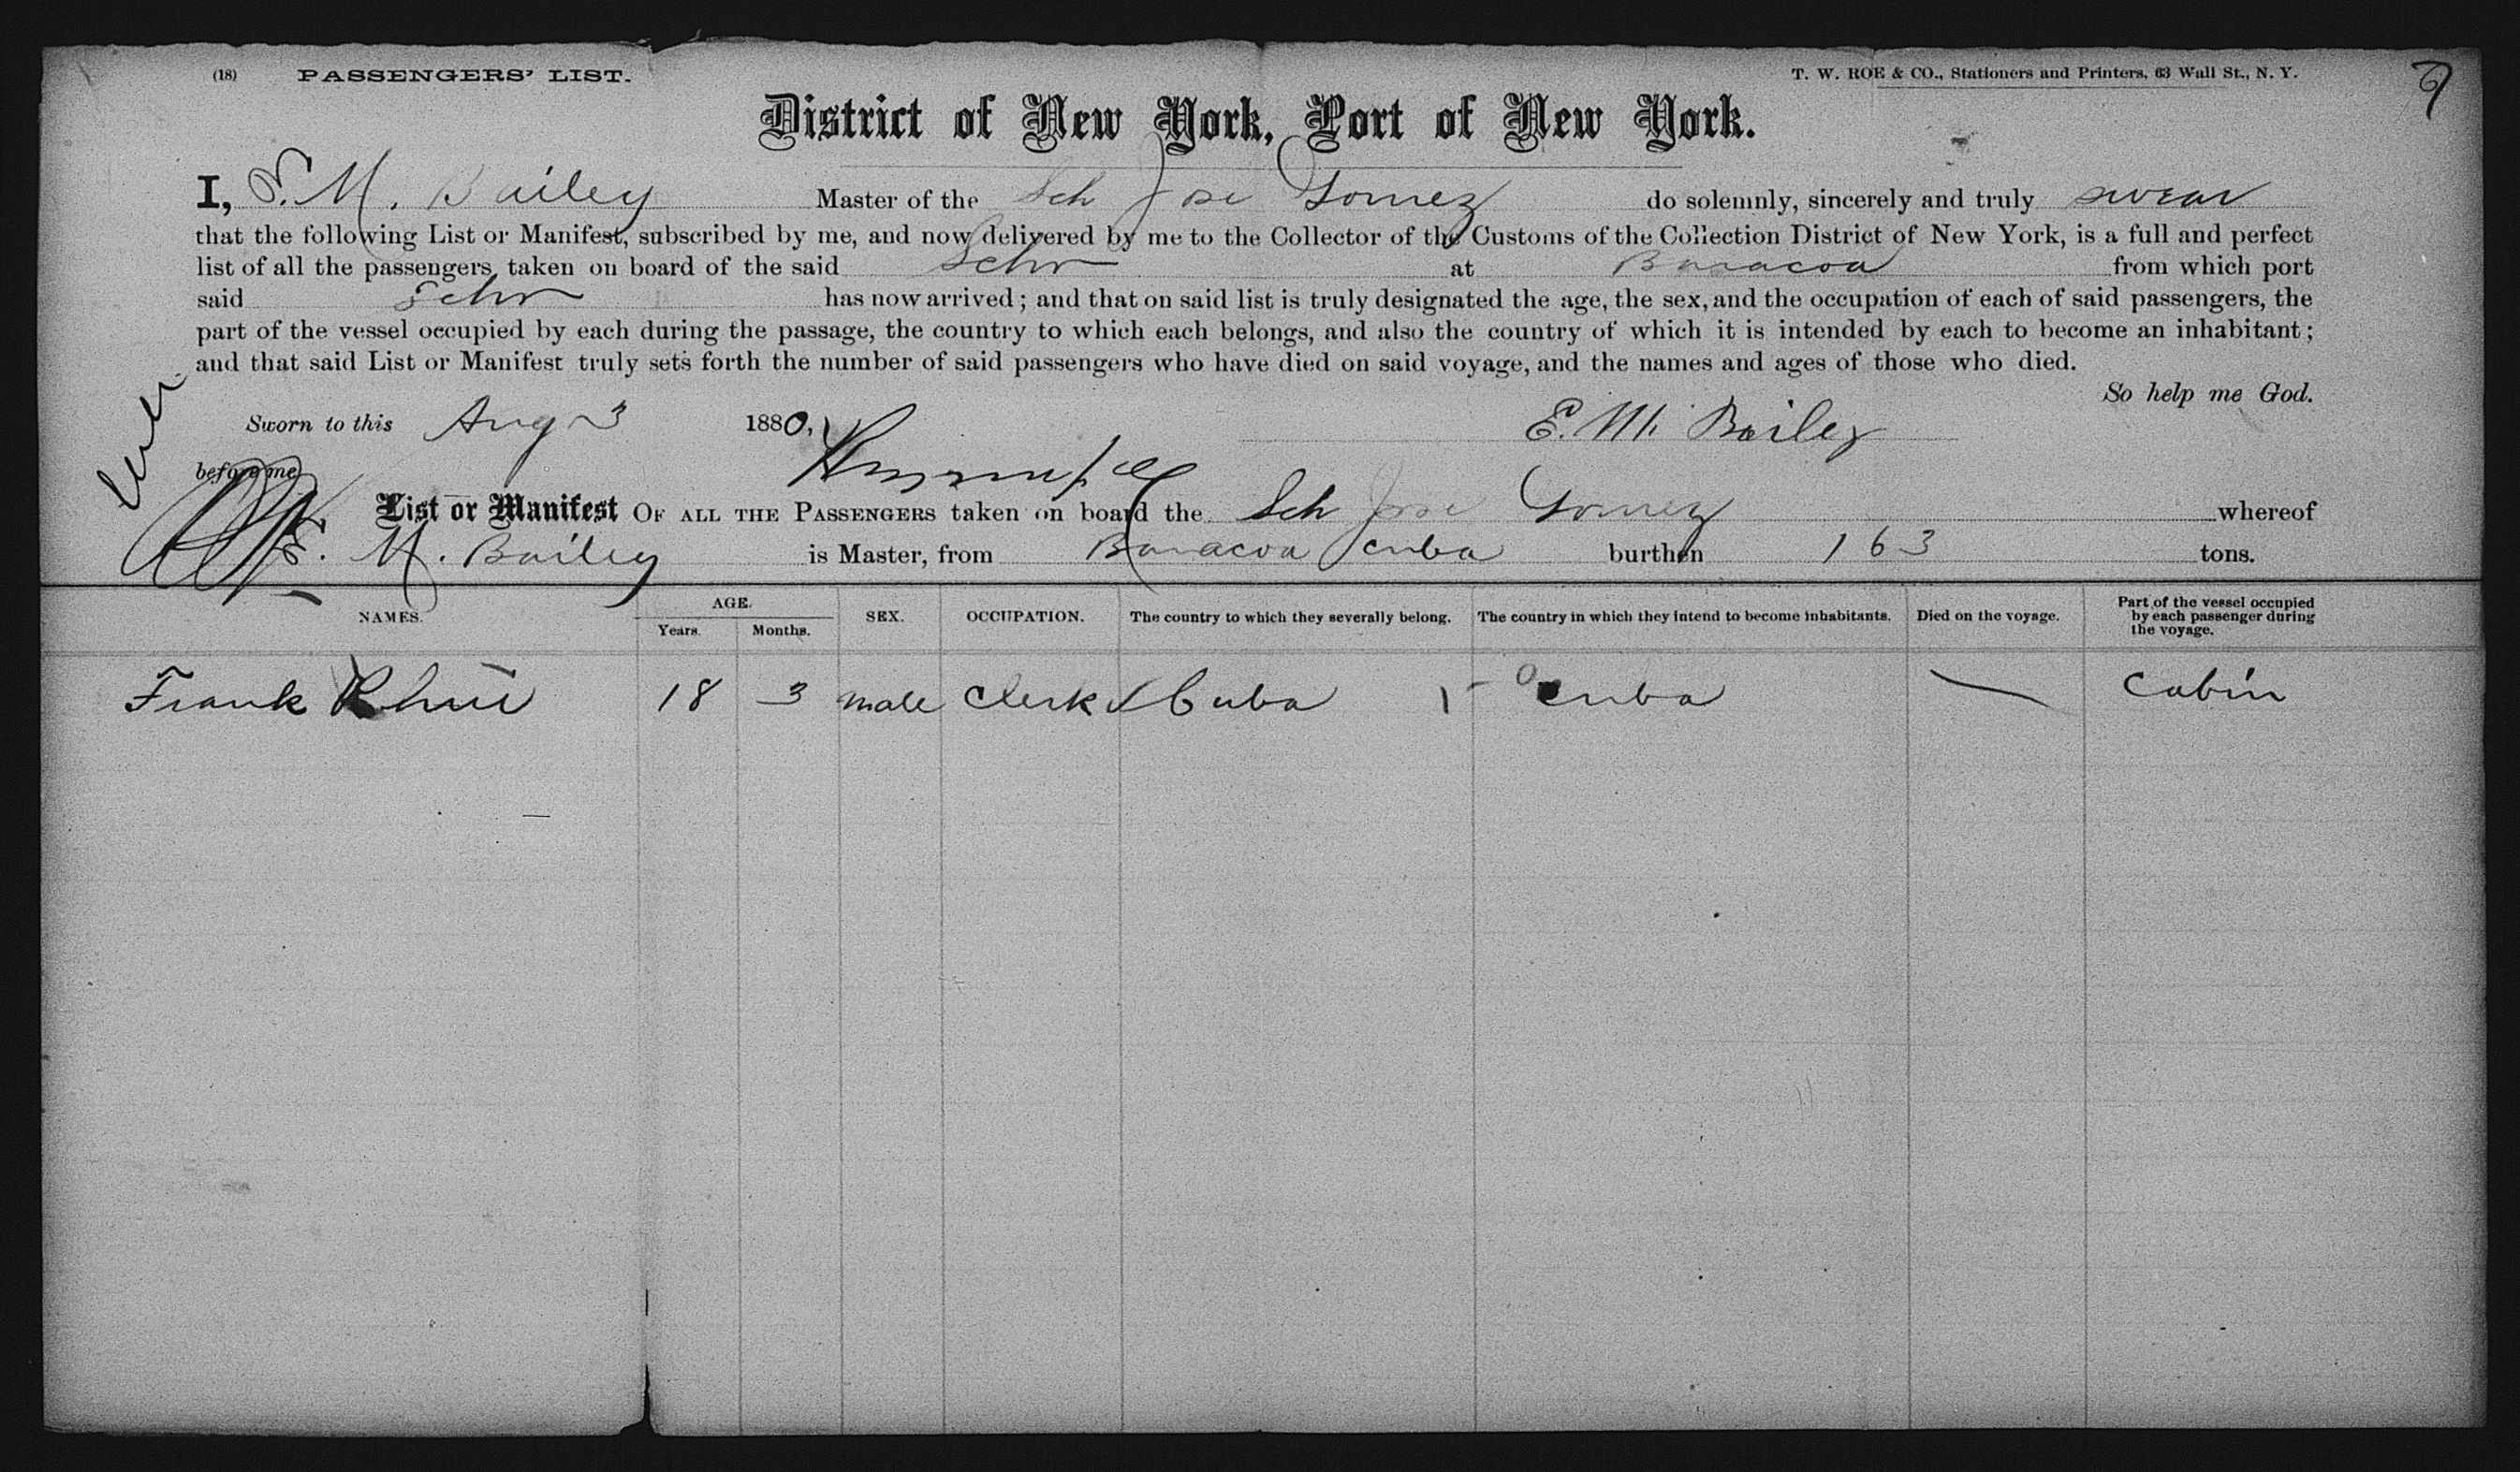 (18) PASSENGERS' LIST. T. W. ROE & CO., Stationers and Printers, 63 Wall St., N. Y.
District of New York, Port of New York.
I, S. M. Bailey Master of the Sch Jose Gomez do solemnly, sincerely and truly swear
that the following List or Manifest, subscribed by me, and now delivered by me to the Collector of the Customs of the Collection District of New York, is a full and perfect
list of all the passengers taken on board of the said Schr at Baracoa from which port
said Schr has now arrived; and that on said list is truly designated the age, the sex, and the occupation of each of said passengers, the
part of the vessel occupied by each during the passage, the country to which each belongs, and also the country of which it is intended by each to become an inhabitant;
and that said List or Manifest truly sets forth the number of said passengers who have died on said voyage, and the names and ages of those who died.
So help me God.
Sworn to this Aug 3 1880, E. M. Bailey
before me
List or Manifest OF ALL THE PASSENGERS taken on board the Sch Jose Gomez whereof
S. M. Bailey is Master, from Baracoa Cuba burthen 163 tons.
NAMES. AGE. SEX. OCCUPATION. The country to which they severally belong. The country in which they intend to become inhabitants. Died on the voyage. Part of the vessel occupied by each passenger during the voyage.
Years. Months.
Frank 18 3 male Clerk Cuba Cuba Cabin